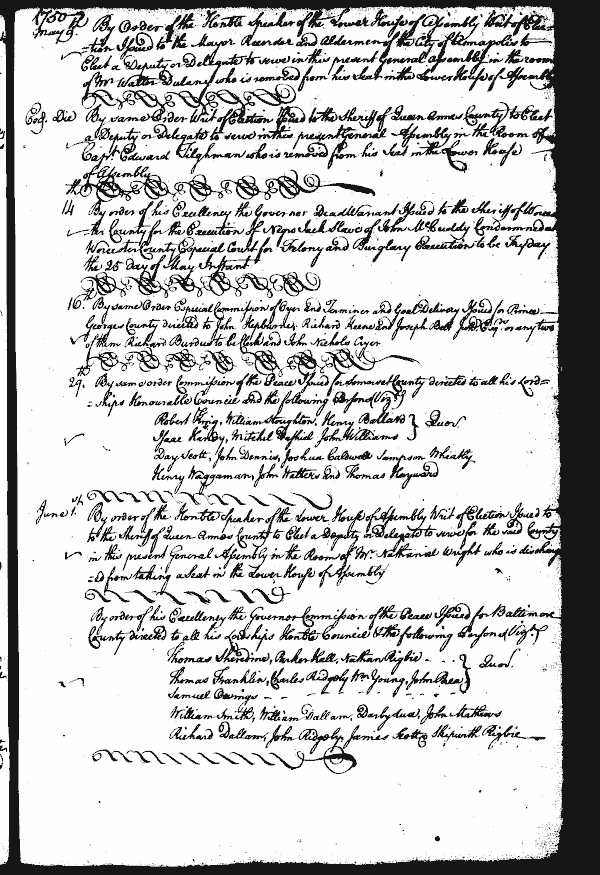 1750
May 9th. By Order of the Honble Speaker of the Lower House of Assembly Writ of Elec=
=tion Issued to the Mayor Recorder and Aldermen of the City of Annapolis to
Elect a Deputy or Delegate to serve in this present General Assembly in the room
of Mr. Walter Dulany who is removed from his Seat in the Lower House of Assembly
Eod. Die By same Order Writ of Election Issued to the Sheriff of Queen Annes County to Elect
a Deputy or Delegate to serve in this present General Assembly in the Room of
Capt. Edward Tilghman who is removed from his Seat in the Lower House
of Assembly
14th By order of his Excellency the Governor Dead Warrant Issued to the Sheriff of Worces
=ter County for the Execution of Negro Jack Slave of John McCuddy Condemned at
Worcester County Especial Court for Felony and Burglary Execution to be Fryday
the 25 day of May Instant
16th. By same Order Especial Commission of Oyer and Terminer and Goal Delivery Issued for Prince
Georges County directed to John Hepburne, Richard Keene and Joseph Belt Junr. Esqrs. or any two
of them Richard Burdus to be Clerk and John Nichols Cryer
29th. By same order Commission of the Peace Issued for Somerset County directed to all his Lord=
=ships Honourable Council and the following Persons (Vizt.)
Robert King, William Stoughton, Henry Ballard } Quor.
Isaac Handy, Mitchel Dashiel John Williams
Day Scott, John Dennis, Joshua Caldwell Sampson Wheatly
Henry Waggaman, John Walters and Thomas Hayward
June 1st. By order of the Honble Speaker of the Lower House of Assembly, Writ of Election Issued to
to the Sheriff of Queen Annes County to Elect a Deputy or Delegate to serve for the said County
in this present General Assembly in the Room of Mr. Nathaniel Wright who is discharg
=ed from taking a Seat in the Lower House of Assembly
By order of his Excellency the Governor Commission of the Peace Issued for Baltimore
County directed to all his Lordships Honble Council & the following Persons (Vizt.)
Thomas Sheredine, Parker Hall, Nathan Rigbie } Quor.
Thomas Franklin, Charles Ridgely Wm Young, John Paca
Samuel Owings
William Smith, William Dallam, Darby Lux, John Mathews
Richard Dallam, John Ridgely, James Scott & Skipwith Rigbie